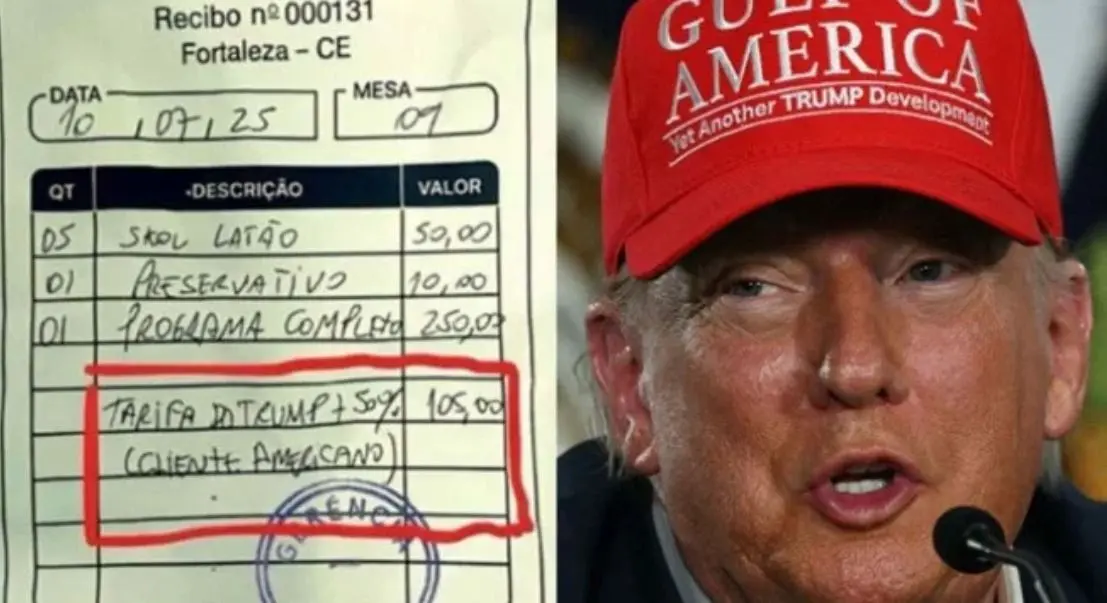 Recibo nº 000131
Fortaleza – CE
DATA
10 , 07, 25
MESA
01
QT -DESCRIÇÃO VALOR
05 SKOL LATÃO 50,00
01 PRESERVATIVO 10,00
01 PROGRAMA COMPLETO 250,00
TARIFA DO TRUMP + 50% 105,00
(CLIENTE AMERICANO)
GERÊNCIA
GULF OF
AMERICA
Yet Another TRUMP Development